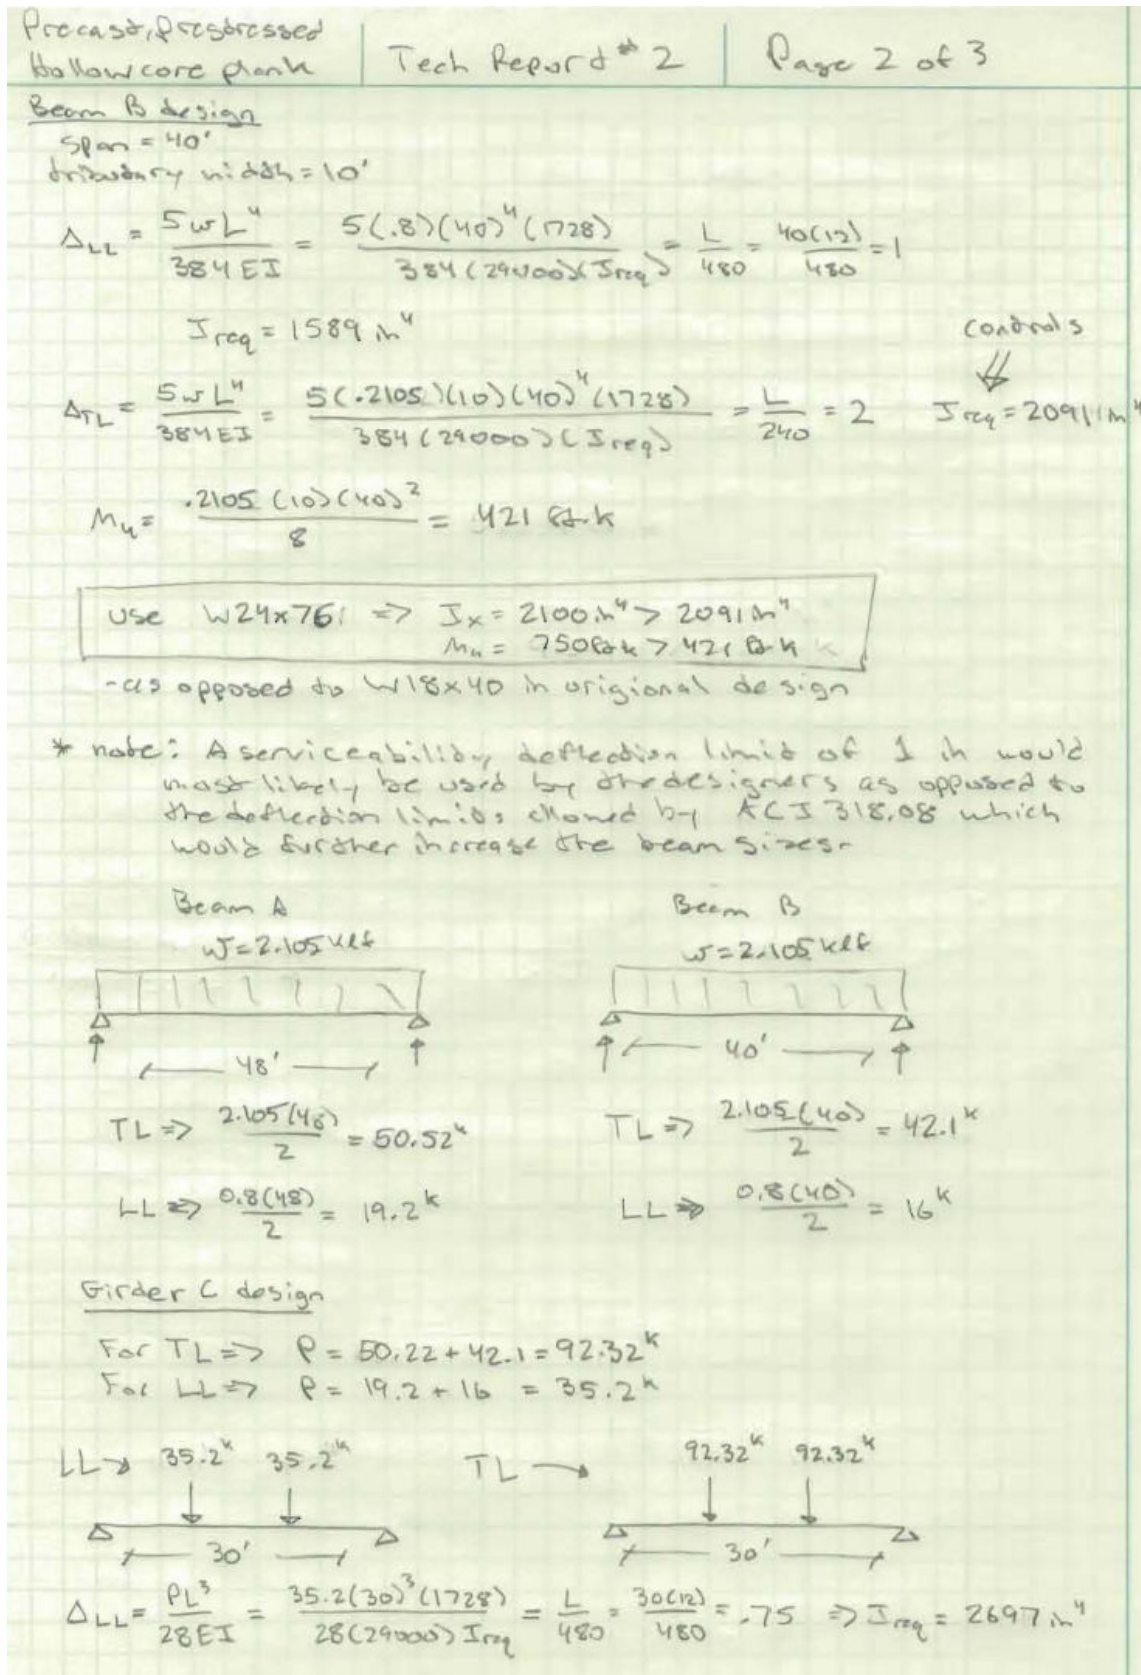 Precast, Prestressed
Hollowcore plank
Tech Report #2
Page 2 of 3
Beam B design
span = 40'
tributary width = 10'
Δ_LL = 5wL⁴/384EI = 5(.8)(40)⁴(1728)/384(29000)(I_req) = L/480 = 40(12)/480 = 1
I_req = 1589 in⁴
controls
Δ_TL = 5wL⁴/384EI = 5(.2105)(10)(40)⁴(1728)/384(29000)(I_req) = L/240 = 2 I_req = 2091 in⁴
M_u = .2105(10)(40)²/8 = 421 ft.k
use W24x76: => I_x = 2100 in⁴ > 2091 in⁴
M_u = 750 ft k > 421 ft k
-as opposed to W18x40 in origional design
* note: A serviceability deflection limit of 1 in would
most likely be used by the designers as opposed to
the deflection limits allowed by ACI 318.08 which
would further increase the beam sizes.
Beam A
w=2.105 klf
48'
TL => 2.105(48)/2 = 50.52ᵏ
LL => 0.8(48)/2 = 19.2ᵏ
Beam B
w=2.105 klf
40'
TL => 2.105(40)/2 = 42.1ᵏ
LL => 0.8(40)/2 = 16ᵏ
Girder C design
For TL => P = 50.22 + 42.1 = 92.32ᵏ
For LL => P = 19.2 + 16 = 35.2ᵏ
LL → 35.2ᵏ 35.2ᵏ
30'
TL → 92.32ᵏ 92.32ᵏ
30'
Δ_LL = PL³/28EI = 35.2(30)³(1728)/28(29000) I_req = L/480 = 30(12)/480 = .75 => I_req = 2697 in⁴